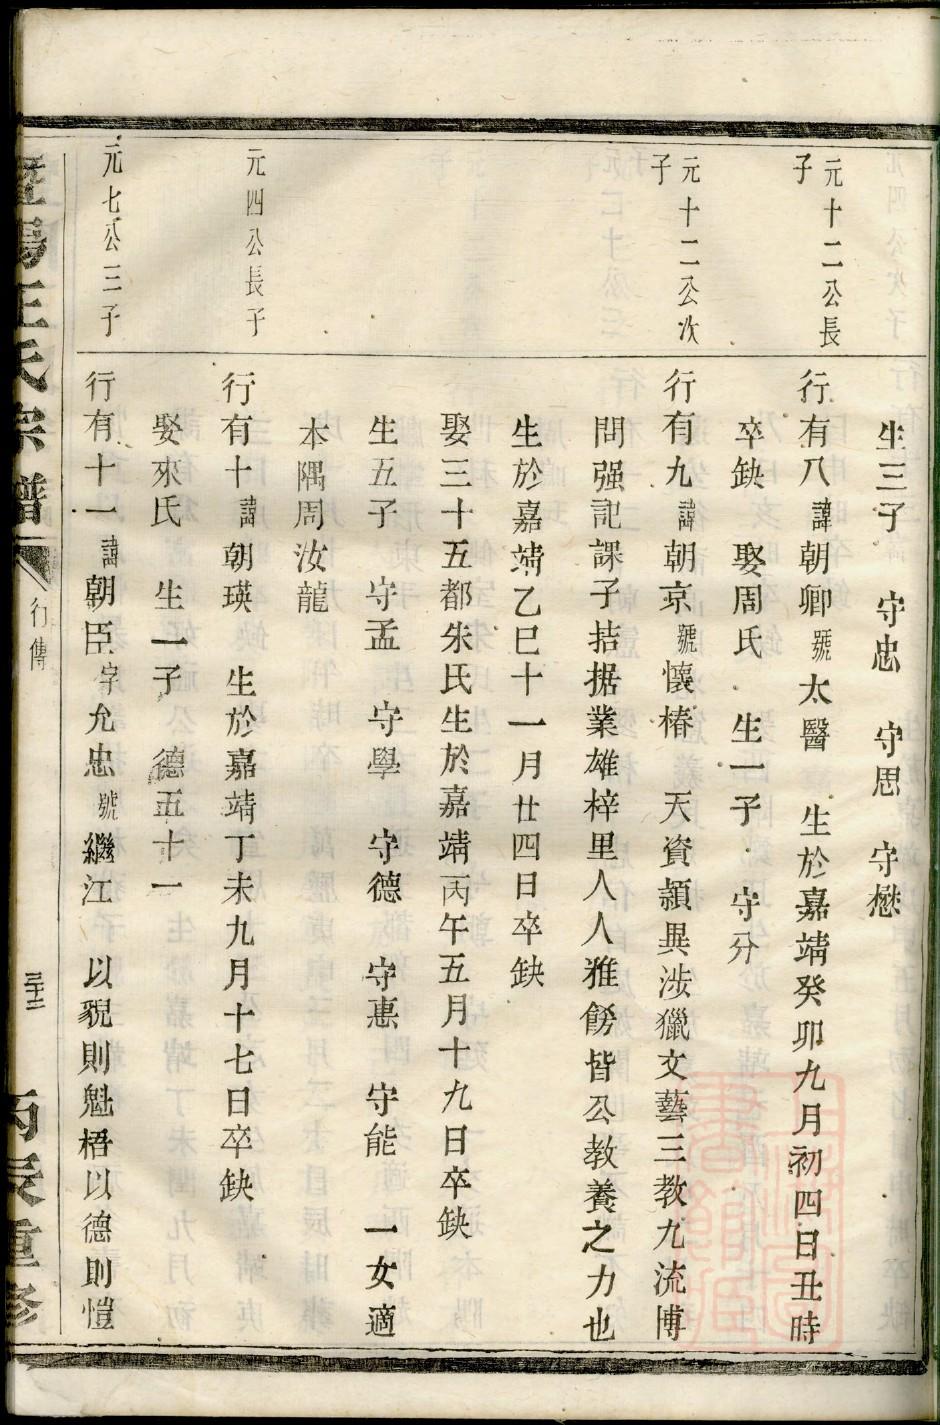 生三子　守忠　守思　守懋
元十二公長子
行有八諱朝卿號太醫　生於嘉靖癸卯九月初四日丑時
卒缺　娶周氏　生一子　守分
元十二公次子
行有九諱朝京號懷椿　天資穎異涉獵文藝三教九流博
問强記課子拮据業雄梓里人人雅餝皆公教養之力也
生於嘉靖乙巳十一月廿四日卒缺
娶三十五都朱氏生於嘉靖丙午五月十九日卒缺
生五子　守孟　守學　守德　守惠　守能　一女適
本隅周汝龍
元四公長子
行有十諱朝瑛　生於嘉靖丁未九月十七日卒缺
娶來氏　生一子　德五十一
元七公三子
行有十一諱朝臣字允忠號繼江　以貌則魁梧以德則愷
暨陽王氏宗譜　行傳　三十二　丙辰重修